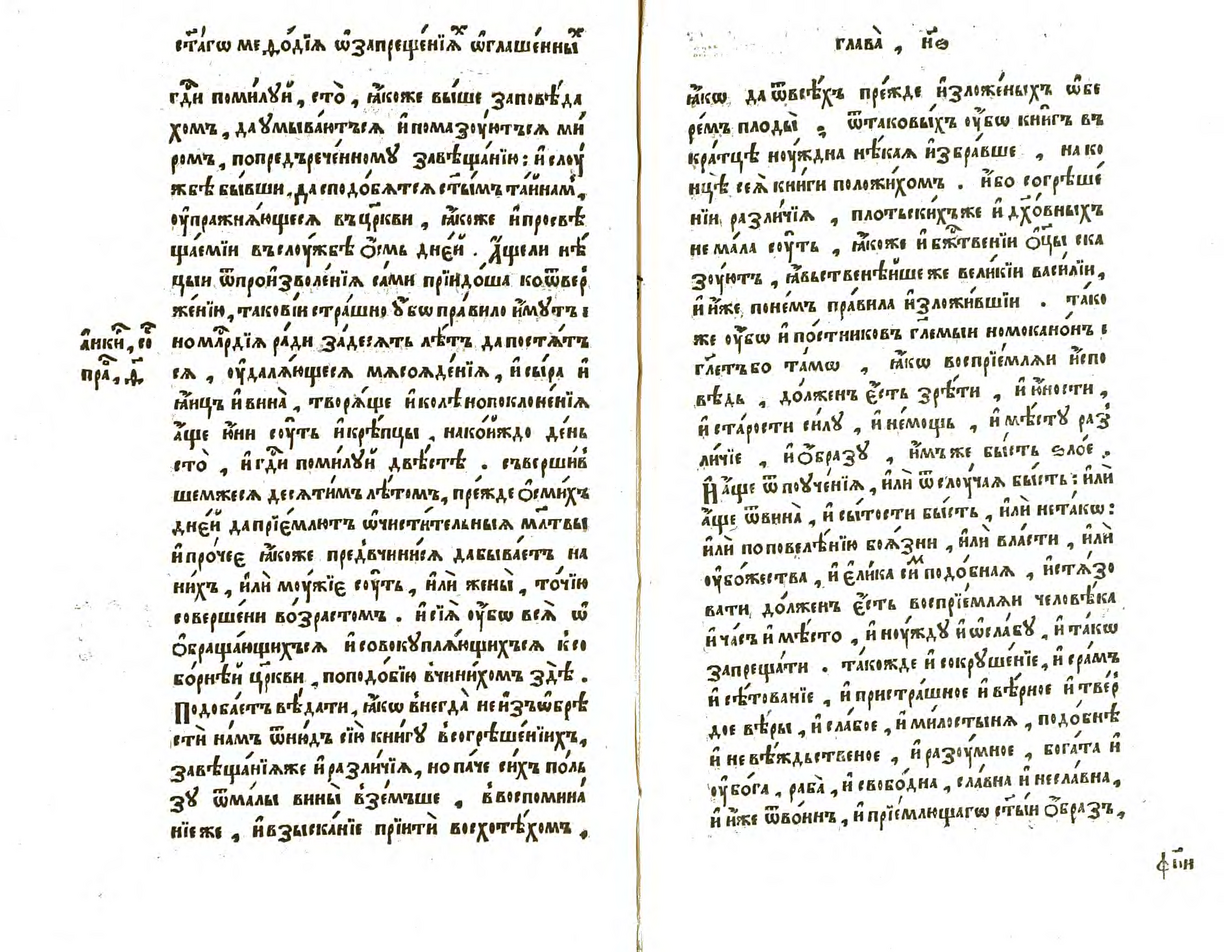 ст҃а́гѡ меѳо́дїѧ ѡ҆запреще́нїѧⷯ ѡ҆глаше́нныⷯ
гдⷭ҇и поми́луй, сто̀, ꙗ҆́коже вы́ше заповѣ́да
хомъ, да ᲂумыва́ютъсѧ и҆ помазꙋ́ютьсѧ мѵ́
ромъ, по предъ рече́нномꙋ завѣща́нїю: и҆ слꙋ́
жбѣ бы́вши, да сподо́бѧтсѧ ст҃ы́мъ та́йнамъ,
ᲂу҆пражнѧ́ющесѧ въ цр҃кви, ꙗ҆́коже и҆ просвѣ
ща́емїи въ слꙋ́жбѣ ѻ҆́смь дні́й. А҆́ще ли нѣ́
цыи ѿ произволе́нїѧ са́ми прїидо́ша ко ѿвер
же́нїю, такові́и стра́шно ᲂу҆́бѡ пра́вило и҆́мꙋтъ:
но млⷭ҇рдїѧ ра́ди за де́сѧть лѣ́тъ да постѧ́тъ
сѧ, ᲂу҆далѧ́ющесѧ мѧсоѧде́нїѧ, и҆ сы́ра и҆
ꙗ҆и́цъ и҆ вина̀, творѧ́ще и҆ колѣнопоклоне́нїѧ
а҆́ще ю҆́ни сꙋ́ть и҆ крѣ́пцы, на ко́йждо де́нь
сто̀, и҆ гдⷭ҇и поми́луй двѣ́стѣ. съверши́в
шемжесѧ десѧти́мъ лѣ́томъ, пре́жде ѻ҆сми́хъ
дне́й да прїе́млютъ ѡ҆чисти́тельныѧ мл҃твы
и҆ про́чее ꙗ҆́коже пред̾вчини́сѧ да быва́етъ на
ни́хъ, и҆лѝ мꙋ́жїе сꙋ́ть, и҆лѝ жены̀, то́чїю
соверше́ни во́зрастомъ. и҆ сїѧ̀ ᲂу҆́бѡ всѧ̀ ѡ҆
ѻ҆браща́ющихъсѧ и҆ совокꙋплѧ́ющихъсѧ к̾ со
бо́рнѣй цр҃кви, по подо́бїю вчини́хомъ здѣ̀.
Подоба́етъ вѣ́дати, ꙗ҆́кѡ внегда̀ не и҆з̾ѡбрѣ
стѝ на́мъ ѿню́дъ сїю̀ кни́гꙋ в̾ согрѣше́нїихъ,
завѣща́нїѧ же и҆ разли́чїѧ, но па́че си́хъ по́ль
зꙋ ѿ ма́лы вины̀ взе́мъше, в̾ воспомина́
нїе же, и҆ взыска́нїе прїитѝ восхотѣ́хомъ,
глава̀, н҃ѳ
ꙗ҆́кѡ да ѿ всѣ́хъ пре́жде и҆зложе́ныхъ ѡ҆бе
ре́мъ плоды̀ , ѿ таковы́хъ ᲂу҆́бѡ кни́гъ въ
кра́тцѣ нꙋ́ждна нѣ́каѧ и҆збра́вше , на ко
нцѣ̀ сеѧ̀ кни́ги положи́хомъ. и҆́бо согрѣше́
нїи разли́чїѧ , пло́тьскихъ же и҆ дх҃о́вныхъ
не ма́ла сꙋ́ть , ꙗ҆́коже и҆ бж҃е́ственїи ѻ҆ц҃ы̀ ска
зꙋ́ютъ , ꙗ҆́вьственѣйше же вели́кїи васи́лїи,
и҆ и҆́же по не́мъ пра́вила и҆зложи́вшїи . та́ко
же ᲂу҆́бѡ и҆ по́стниковъ гл҃емыи номокано́нъ с
гл҃етъ бо та́мѡ , ꙗ҆́кѡ воспрїе́млѧи и҆́спо
вѣдь , до́лженъ є҆́сть зрѣ́ти , и҆ ю҆́ности ,
и҆ ста́рости си́лꙋ , и҆ не́мощь , и҆ мѣ́стꙋ раз̾
ли́чїе , и҆ ѻ҆́бразꙋ , и҆́мъ же бы́сть ѕло́е .
И҆ а҆́ще ѿ поꙋче́нїѧ, и҆лѝ ѿ слꙋ́чаѧ бы́сть: и҆лѝ
а҆́ще ѿ вина̀, и҆ сы́тости бы́сть , и҆лѝ не та́кѡ:
и҆лѝ по повелѣ́нїю боѧ́зни , и҆лѝ вла́сти , и҆лѝ
ᲂу҆бо́жества , и҆ є҆ли́ка сиⷨ подо́бнаѧ , и҆стѧзо
вати до́лженъ є҆́сть воспрїе́млѧи человѣ́ка
и҆ ча́съ и҆ мѣ́сто , и҆ нꙋ́ждꙋ и҆ ѡ҆сла́бꙋ , и҆ та́кѡ
запреща́ти . та́кожде и҆ сокрꙋше́нїе, и҆ сра́мъ
и҆ сѣ́тованїе , и҆ пристра́шное и҆ вѣ́рное и҆ тве́р
дое вѣ́ры , и҆ сла́бое , и҆ ми́лостынѧ , подо́бнѣ
и҆ невѣ́ждьственое , и҆ разꙋ́мное , бога́та и҆
ᲂу҆бо́га , раба̀ , и҆ свобо́дна , сла́вна и҆ несла́вна ,
и҆ и҆́же ѿ во́инъ , и҆ прїе́млющагѡ ст҃ы́и ѻ҆́бразъ ,